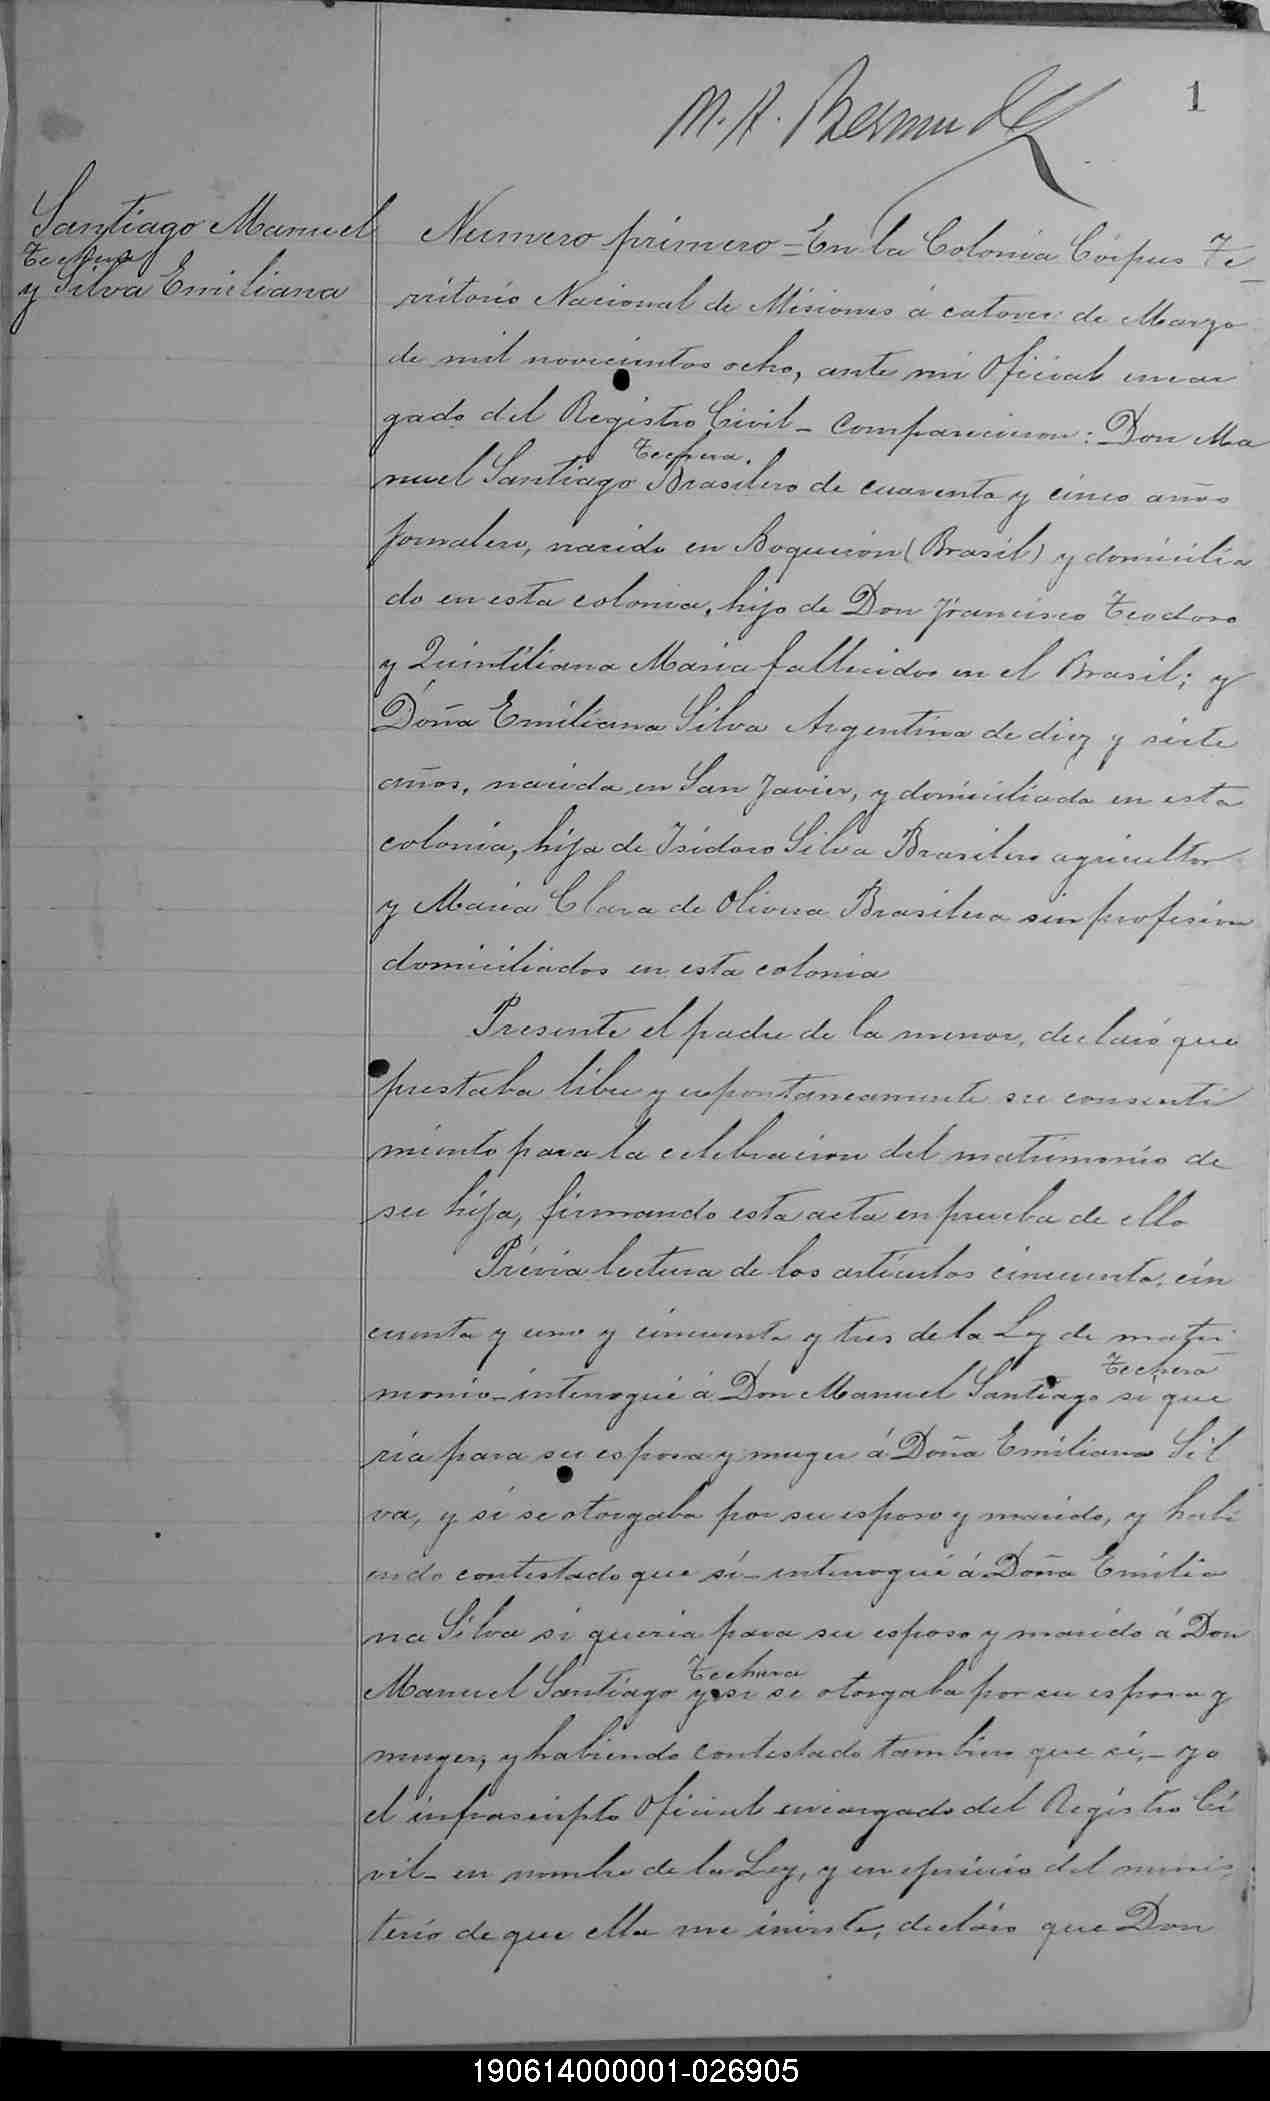 1
M. A. Bermudez
Santiago Manuel
Techera
y Silva Emiliana
Numero primero = En la Colonia Córpus Te-
rritorio Nacional de Misiones á catorce de Marzo
de mil novecientos ocho, ante mi Oficial encar
gado del Registro Civil - Comparecieron: Don Ma
Techera.
nuel Santiago Brasilero de cuarenta y cinco años
jornalero, nacido en Boquiron (Brasil) y domicilia
do en esta colonia, hijo de Don Francisco Teodoro
y Quintiliana Maria fallecidos en el Brasil; y
Doña Emiliana Silva Argentina de diez y siete
años, nacida en San Javier, y domiciliada en esta
colonia, hija de Isidoro Silva Brasilero agricultor
y Maria Clara de Olivera Brasilera sin profesion
domiciliados en esta colonia
Presente el padre de la menor, declaró que
prestaba libre y espontaneamente su consenti
miento para la celebracion del matrimonio de
su hija, firmando esta acta en prueba de ello
Prévia lectura de los artículos cincuenta, cin
cuenta y uno y cincuenta y tres de la Ley de matri-
Techera
monio - interrogué á Don Manuel Santiago si que
ría para su esposa y muger á Doña Emiliana Sil
va, y si se otorgaba por su esposo y marido, y habi
endo contestado que sí - interrogué á Doña Emilia
na Silva si queria para su esposo y marido á Don
Techera
Manuel Santiago y si se otorgaba por su esposa y
muger, y habiendo contestado tambien que sí, - yo
el infrascripto Oficial encargado del Registro Ci
vil - en nombre de la Ley, y en ejercicio del minis
terio de que ella me inviste, declaro que Don
190614000001-026905